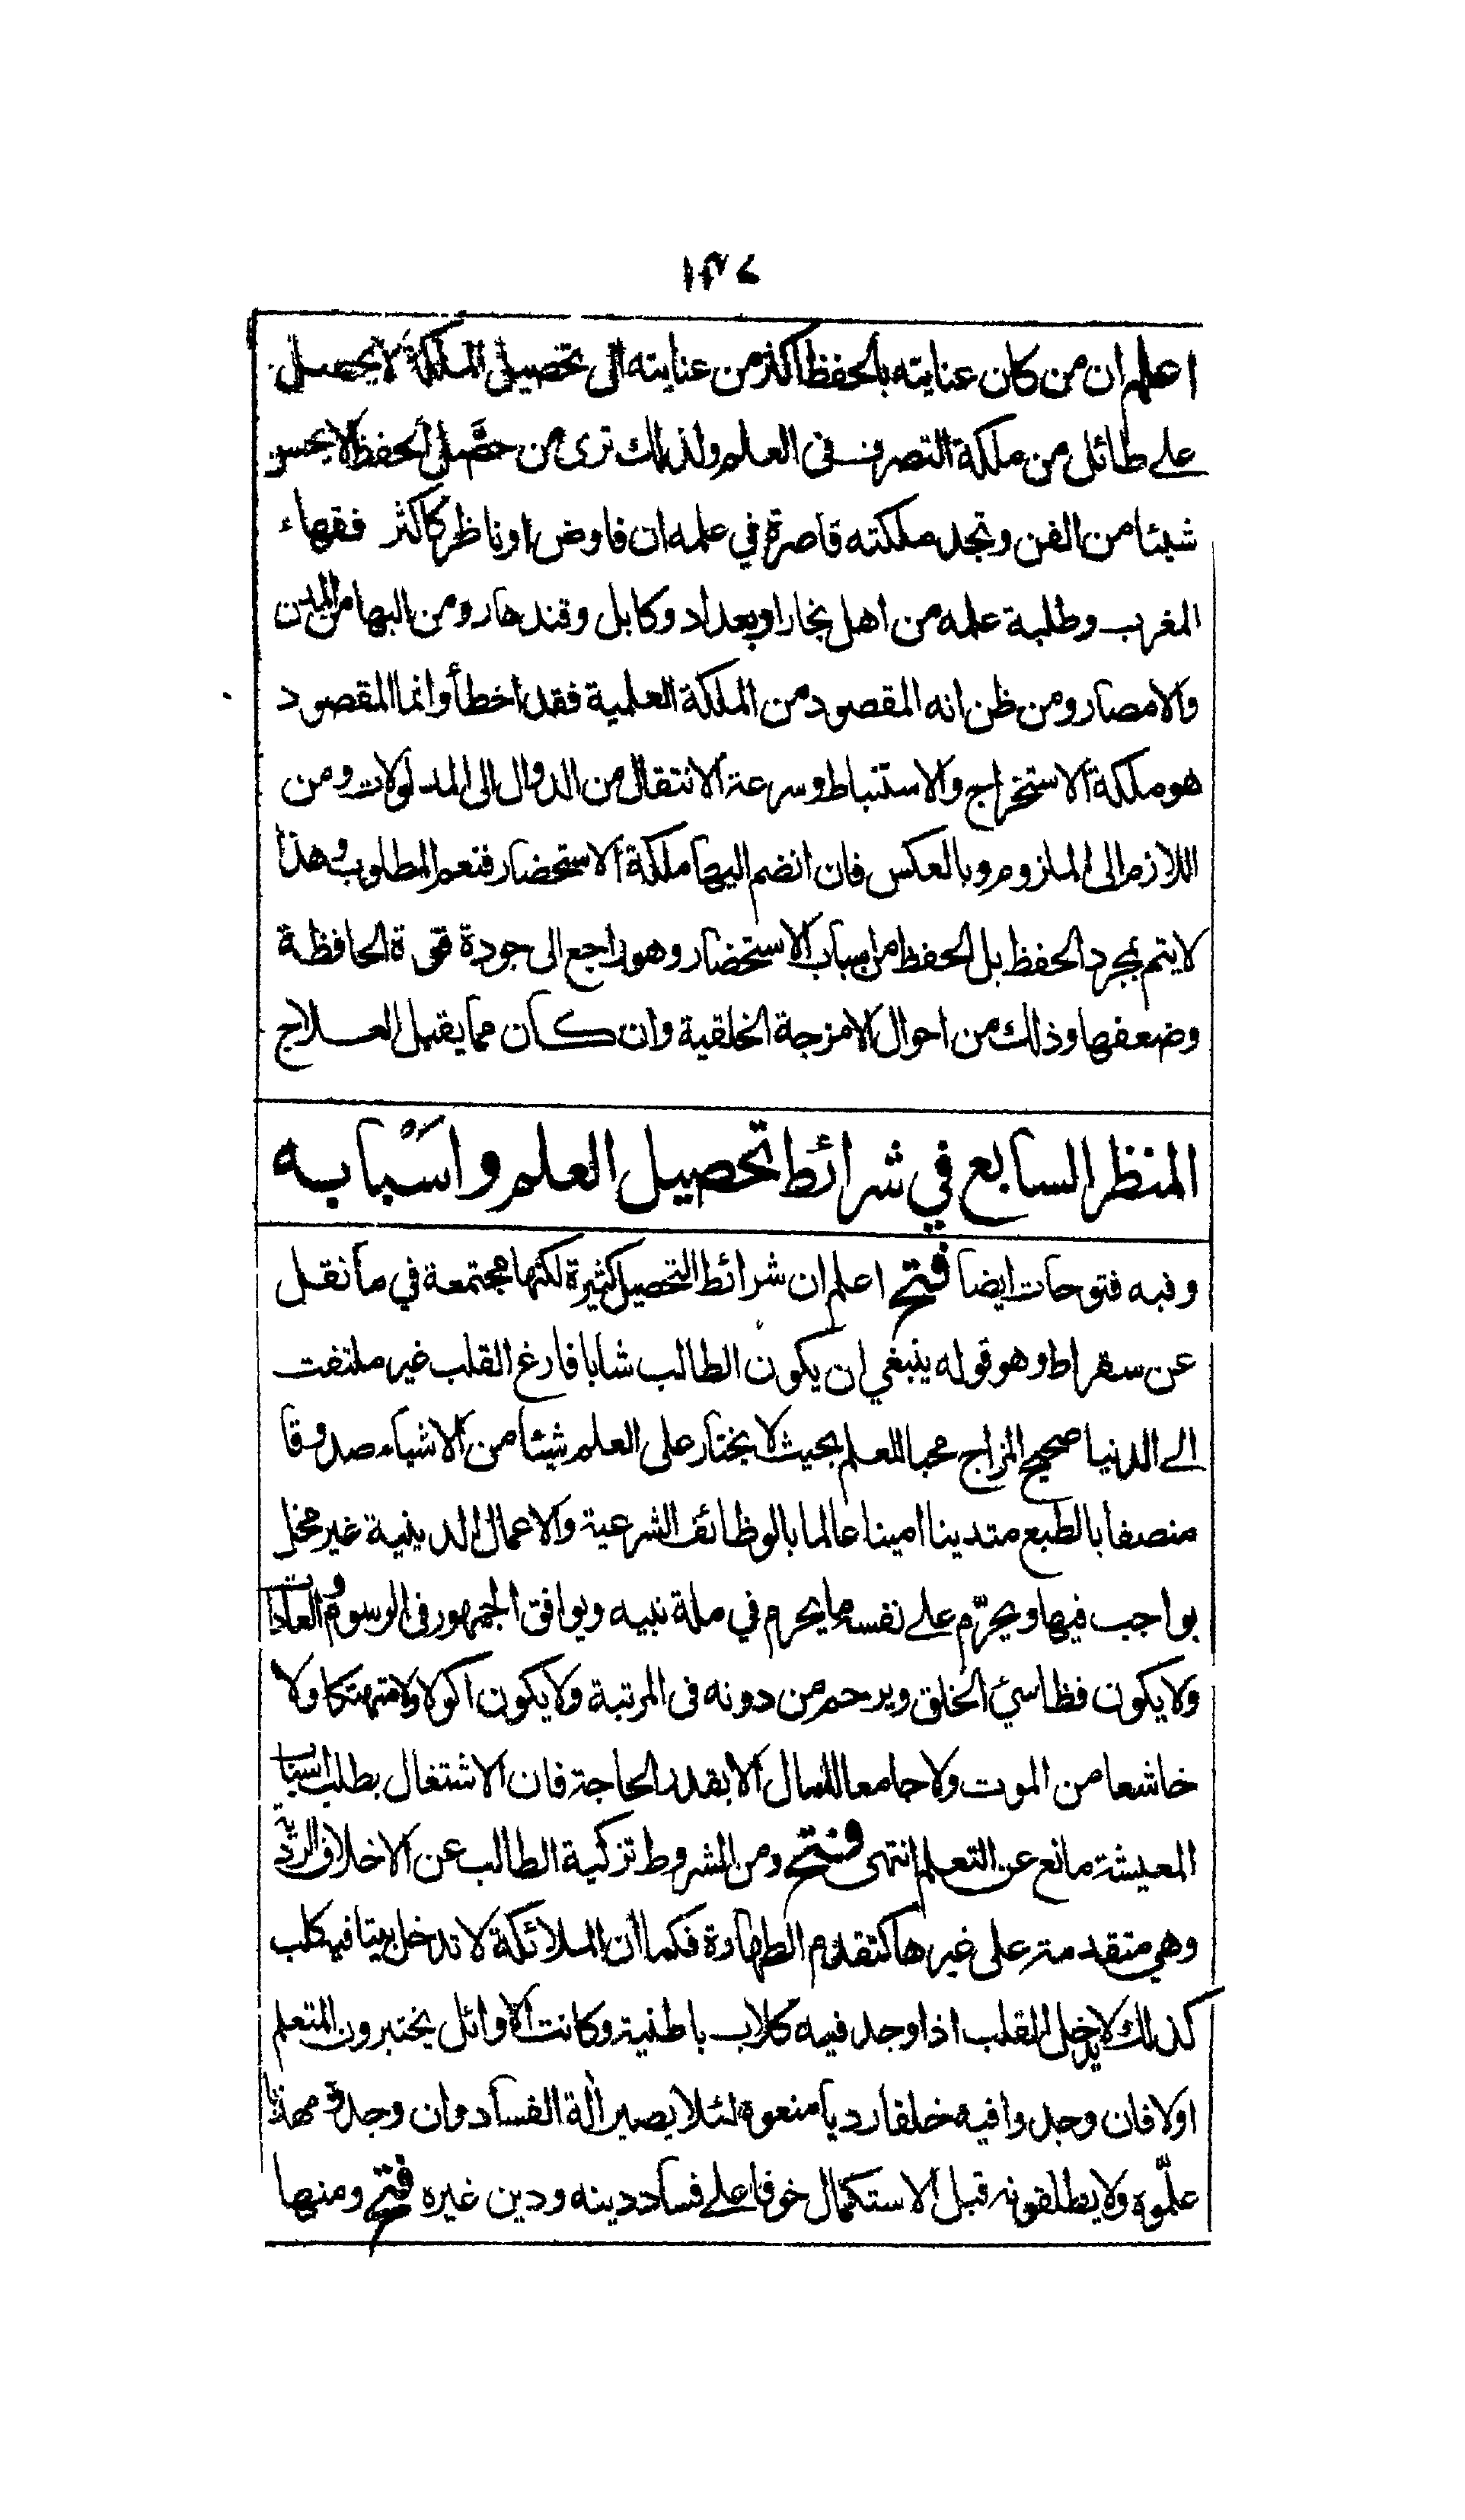 ١٣٤
اعلم ان من كان عنايته بالحفظ اكثر من عنايته الى تحصيل الملكة لا يحصل
على طائل من ملكة التصرف فى العلم ولذلك ترى من حصّل الحفظ لا يحسن
شيئا من الفن وتجد ملكته قاصرة في علمه ان فاوض او ناظر كاكثر فقهاء
المغرب وطلبة علمه من اهل بخارا وبغداد وكابل وقندهار ومن اليها من المدن
والامصار ومن ظن انه المقصود من الملكة العلمية فقد اخطأ وانما المقصود
هو ملكة الاستخراج والاستنباط وسرعة الانتقال من الدوال الى المدلولات ومن
اللازم الى الملزوم وبالعكس فان انضم اليها ملكة الاستحضار فنعم المطلوب وهذا
لا يتم بمجرد الحفظ بل الحفظ من اسباب الاستحضار وهو راجع الى جودة قوة الحافظة
وضعفها وذلك من احوال الامزجة الخلقية وان كان مما يقبل العلاج
المنظر السابع في شرائط تحصيل العلم واسْبابه
وفيه فتوحات ايضا فتح اعلم ان شرائط التحصيل كثيرة لكنها مجتمعة في ما نقل
عن سقراط وهو قوله ينبغي ان يكون الطالب شابا فارغ القلب غير ملتفت
الى الدنيا صحيح المزاج محبا للعلم بحيث لا يختار على العلم شيئا من الاشياء صدوقا
منصفا بالطبع متدينا امينا عالما بالوظائف الشرعية والاعمال الدينية غير مخل
بواجب فيها ويحرّم على نفسه ما يحرم في ملة نبيه ويوافق الجمهور فى الرسوم والعادات
ولا يكون فظا سيئ الخلق ويرحم من دونه فى المرتبة ولا يكون اكولا ولا متهتكا ولا
خاشعا من الموت ولا جامعا للمال الا بقدر الحاجة فان الاشتغال بطلب اسباب
المعيشة مانع عن التعلم انتهى فتح ومن الشروط تزكية الطالب عن الاخلاق الردية
وهي متقدمة على غيرها كتقدم الطهارة فكما ان الملائكة لا تدخل بيتا فيه كلب
كذلك لا يدخل القلب اذا وجد فيه كلاب باطنية وكانت الاوائل يختبرون المتعلم
اولا فان وجدوا فيه خلقا رديا منعوه لئلا يصير الة الفساد وان وجدوه مهذبا
علّموه ولا يطلقونه قبل الاستكمال خوفا على فساد دينه ودين غيره فتح ومنها